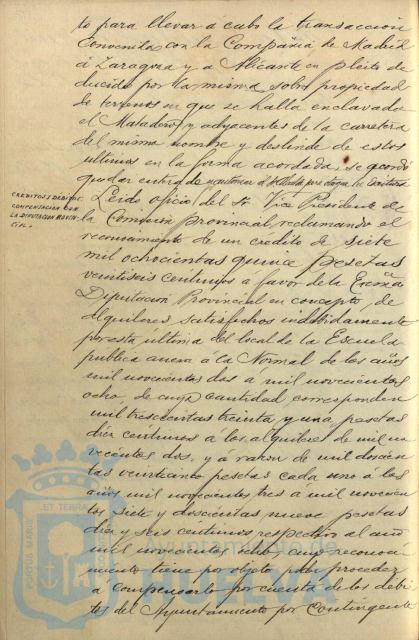 to para llevar a cabo la transacción
convenida con la Compañía de Madrid
á Zaragoza y á Alicante en pleito de
ducido por la misma sobre propiedad
de terrenos en que se halla enclavado
el Matadero y adyacentes de la carretera
del mismo nombre y deslinde de estos
ultimos en la forma acordada, se acordó
quedar enterado y autorizar al Alcalde para otorgar la Escritura
CREDITOS Y DEBITOS
COMPENSACION CON
LA DIPUTACION PROVIN-
CIAL.
Leido oficio del Sr. Vice Presidente de
la Comision Provincial reclamando el
reconocimiento de un credito de siete
mil ochocientas quince pesetas
veintiseis centimos á favor de la Excma
Diputación Provincial en concepto de
alquileres satisfechos indebidamente
por esta última del local de la Escuela
publica aneja á la Normal de los años
mil novecientos dos á mil novecientos
ocho, de cuya cantidad corresponden
mil trescientas treinta y una pesetas
diez centimos a los alquileres de mil no
vecientos dos, y á razon de mil doscien
tas veinticinco pesetas cada uno a los
años mil novecientos tres a mil novecien
tos siete y doscientas nueve pesetas
diez y seis centimos respecto al año
mil novecientos ocho cuyo reconoci
miento tiene por objeto poder proceder
á compensarlo por cuenta de los debi
tos del Ayuntamiento por Contingente
PORTUS MARIS
ET TERRAE
Ayuntamiento
HUELVA